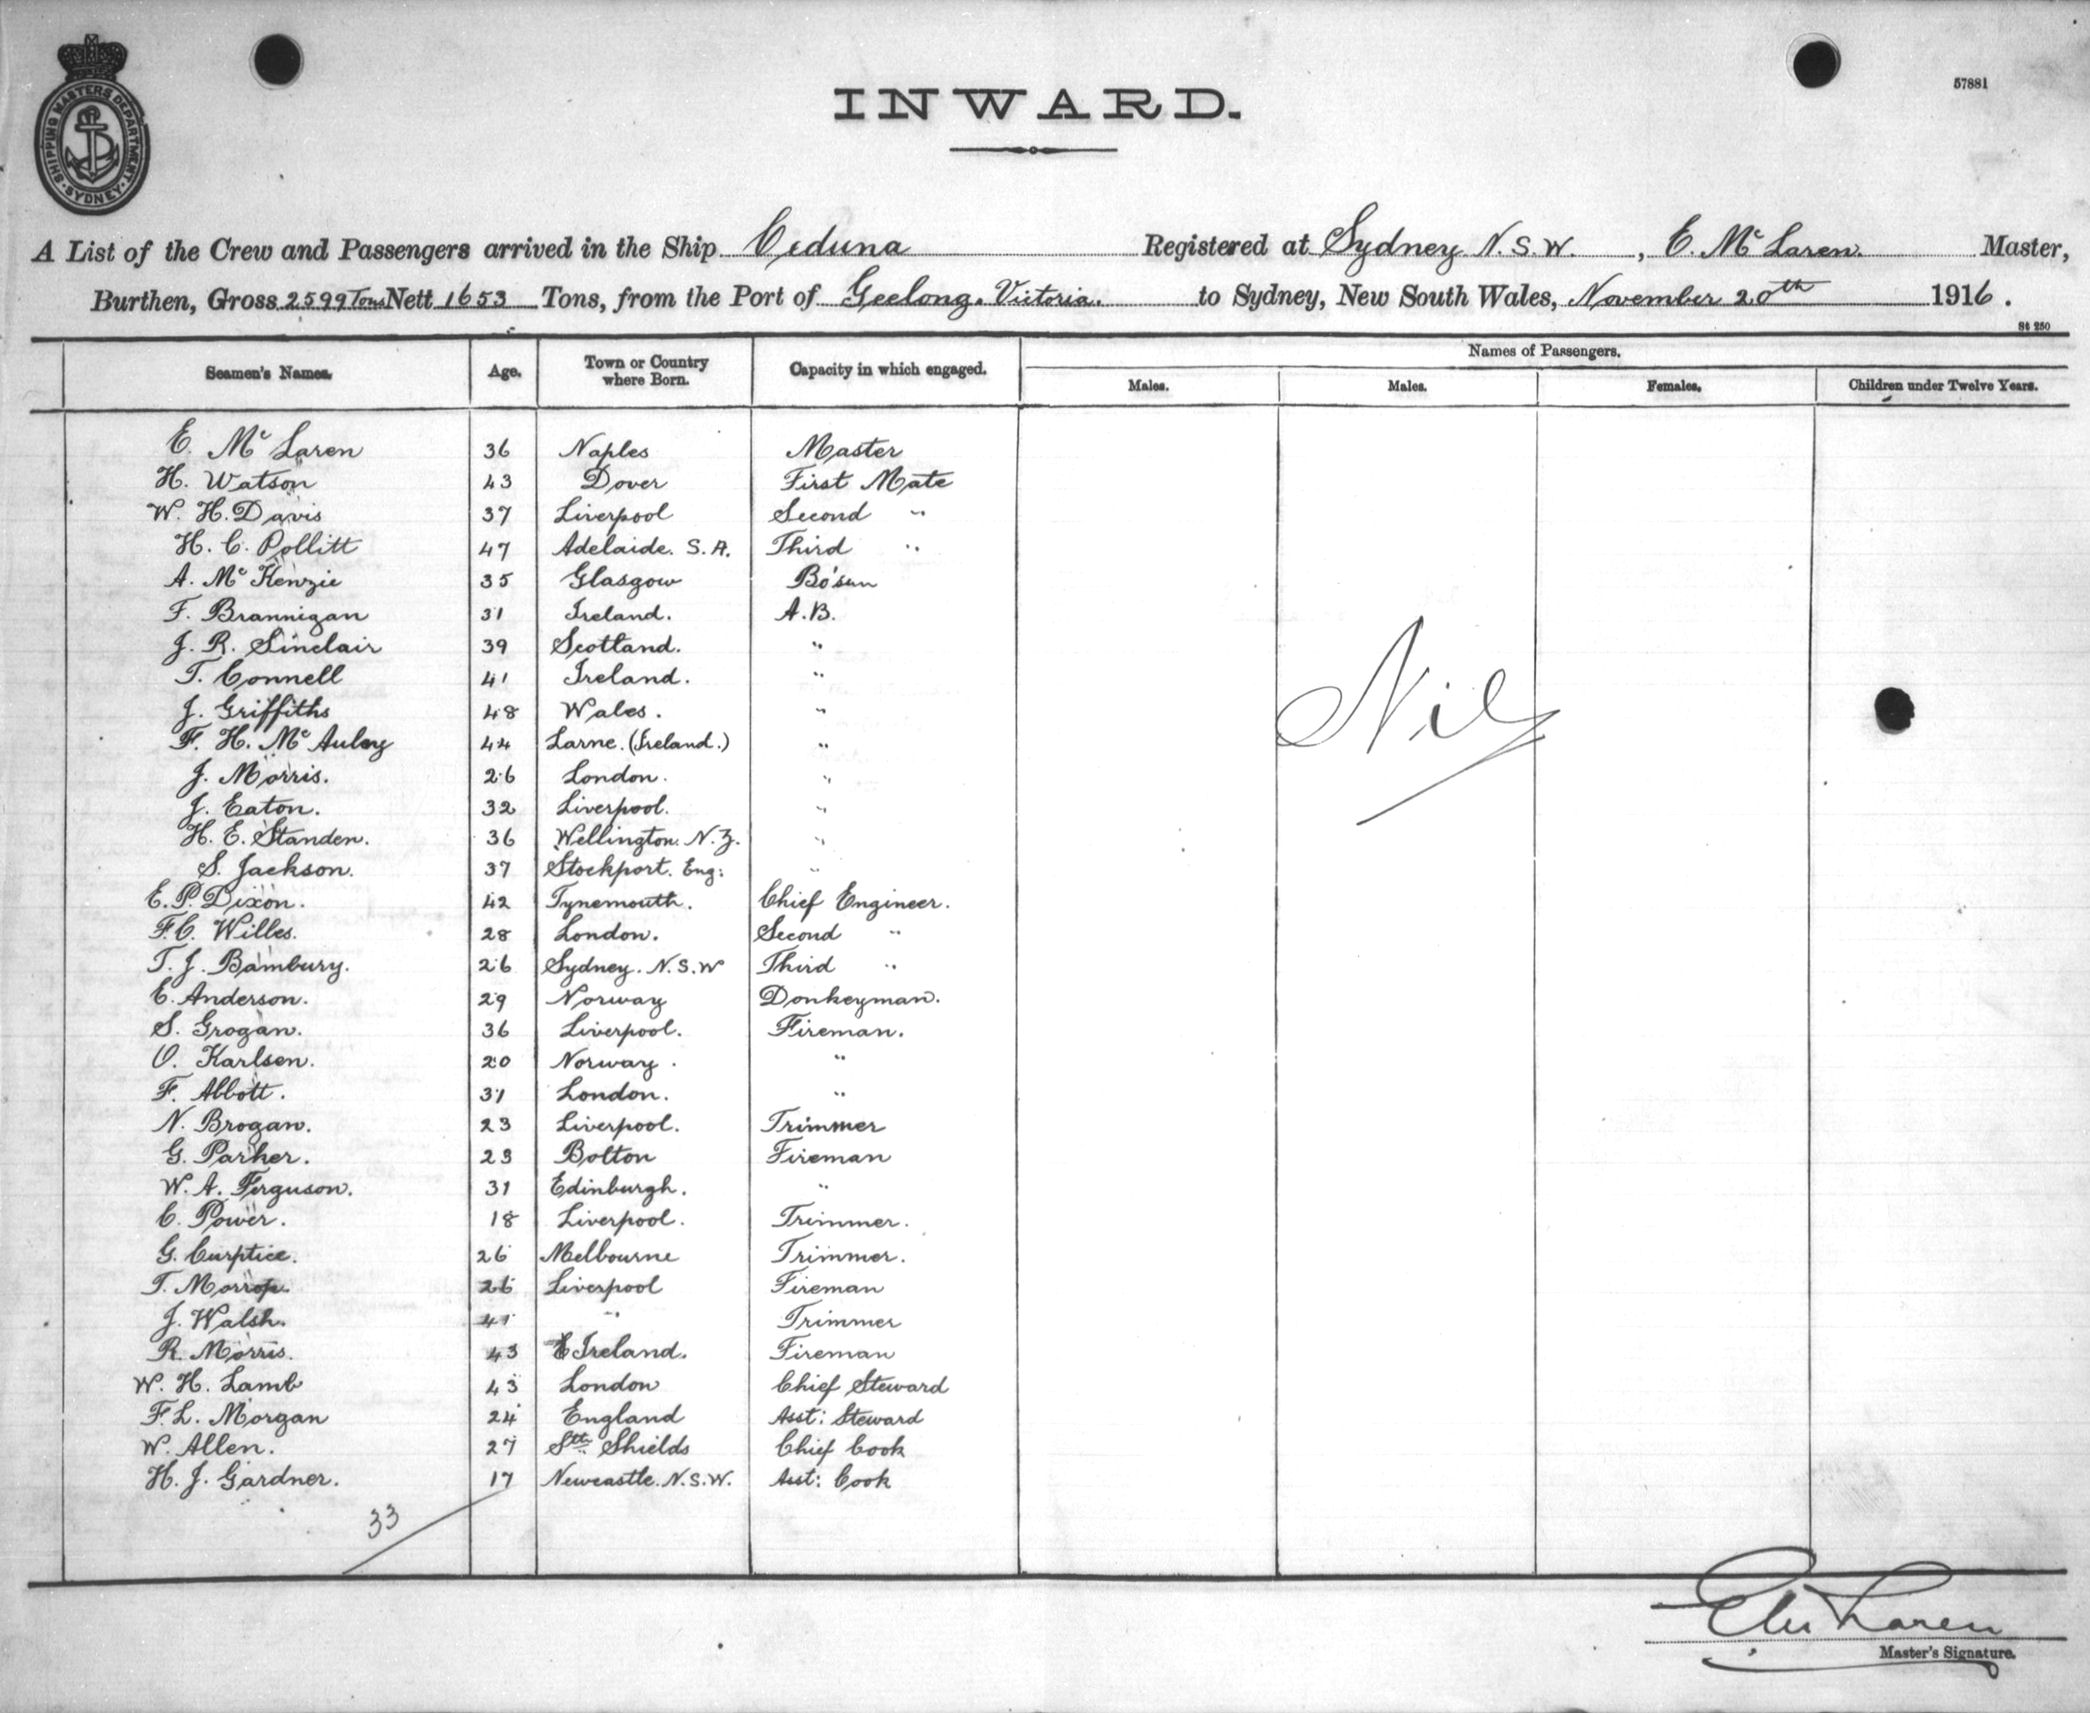 SHIPPING MASTERS DEPARTMENT · SYDNEY ·
57881
INWARD.
A List of the Crew and Passengers arrived in the Ship Ceduna Registered at Sydney N.S.W. , E. McLaren. Master,
Burthen, Gross 2599 Tons Nett 1653 Tons, from the Port of Geelong. Victoria. to Sydney, New South Wales, November 20th 1916.
St 250
Seamen's Names. Age. Town or Country where Born. Capacity in which engaged. Names of Passengers.
Males. Males. Females. Children under Twelve Years.
E. McLaren 36 Naples Master
H. Watson 43 Dover First Mate
W. H. Davis 37 Liverpool Second "
H. C. Pollitt 47 Adelaide. S.A. Third "
A. McKenzie 35 Glasgow Bo'sun
F. Brannigan 31 Ireland. A.B.
J. R. Sinclair 39 Scotland. "
T. Connell 41 Ireland. "
J. Griffiths 48 Wales. "
F. H. McAuley 44 Larne. (Ireland.) "
J. Morris. 26 London. "
J. Eaton. 32 Liverpool. "
H. E. Standen. 36 Wellington. N.Z. "
S. Jackson. 37 Stockport. Eng: "
E. P. Dixon. 42 Tynemouth. Chief Engineer.
F. C. Willes. 28 London. Second "
T. J. Bambury. 26 Sydney. N.S.W Third "
E. Anderson. 29 Norway Donkeyman.
S. Grogan. 36 Liverpool. Fireman.
O. Karlsen. 20 Norway. "
F. Abbott. 31 London. "
N. Brogan. 23 Liverpool. Trimmer
G. Parker. 23 Bolton Fireman
W. A. Ferguson. 31 Edinburgh. "
C. Power. 18 Liverpool. Trimmer.
G. Curptice. 26 Melbourne Trimmer.
T. 26 Liverpool Fireman
J. Walsh. 41 " Trimmer
R. Morris. 43 Ireland. Fireman
W. H. Lamb 43 London Chief Steward
F. L. Morgan 24 England Asst: Steward
W. Allen. 27 Sth Shields Chief Cook
H. J. Gardner. 17 Newcastle. N.S.W. Asst: Cook
Nil
33
E McLaren
Master's Signature.